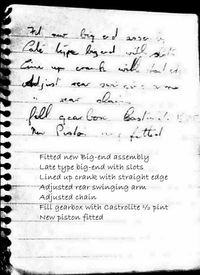 new big end assembly
Late type big end with slots
Line up crank with
Adjust rear
rear chain
fill gearbox
New Piston fitted
Fitted new Big-end assembly
Late type big-end with slots
Lined up crank with straight edge
Adjusted rear swinging arm
Adjusted chain
Fill gearbox with Castrolite ½ pint
New piston fitted